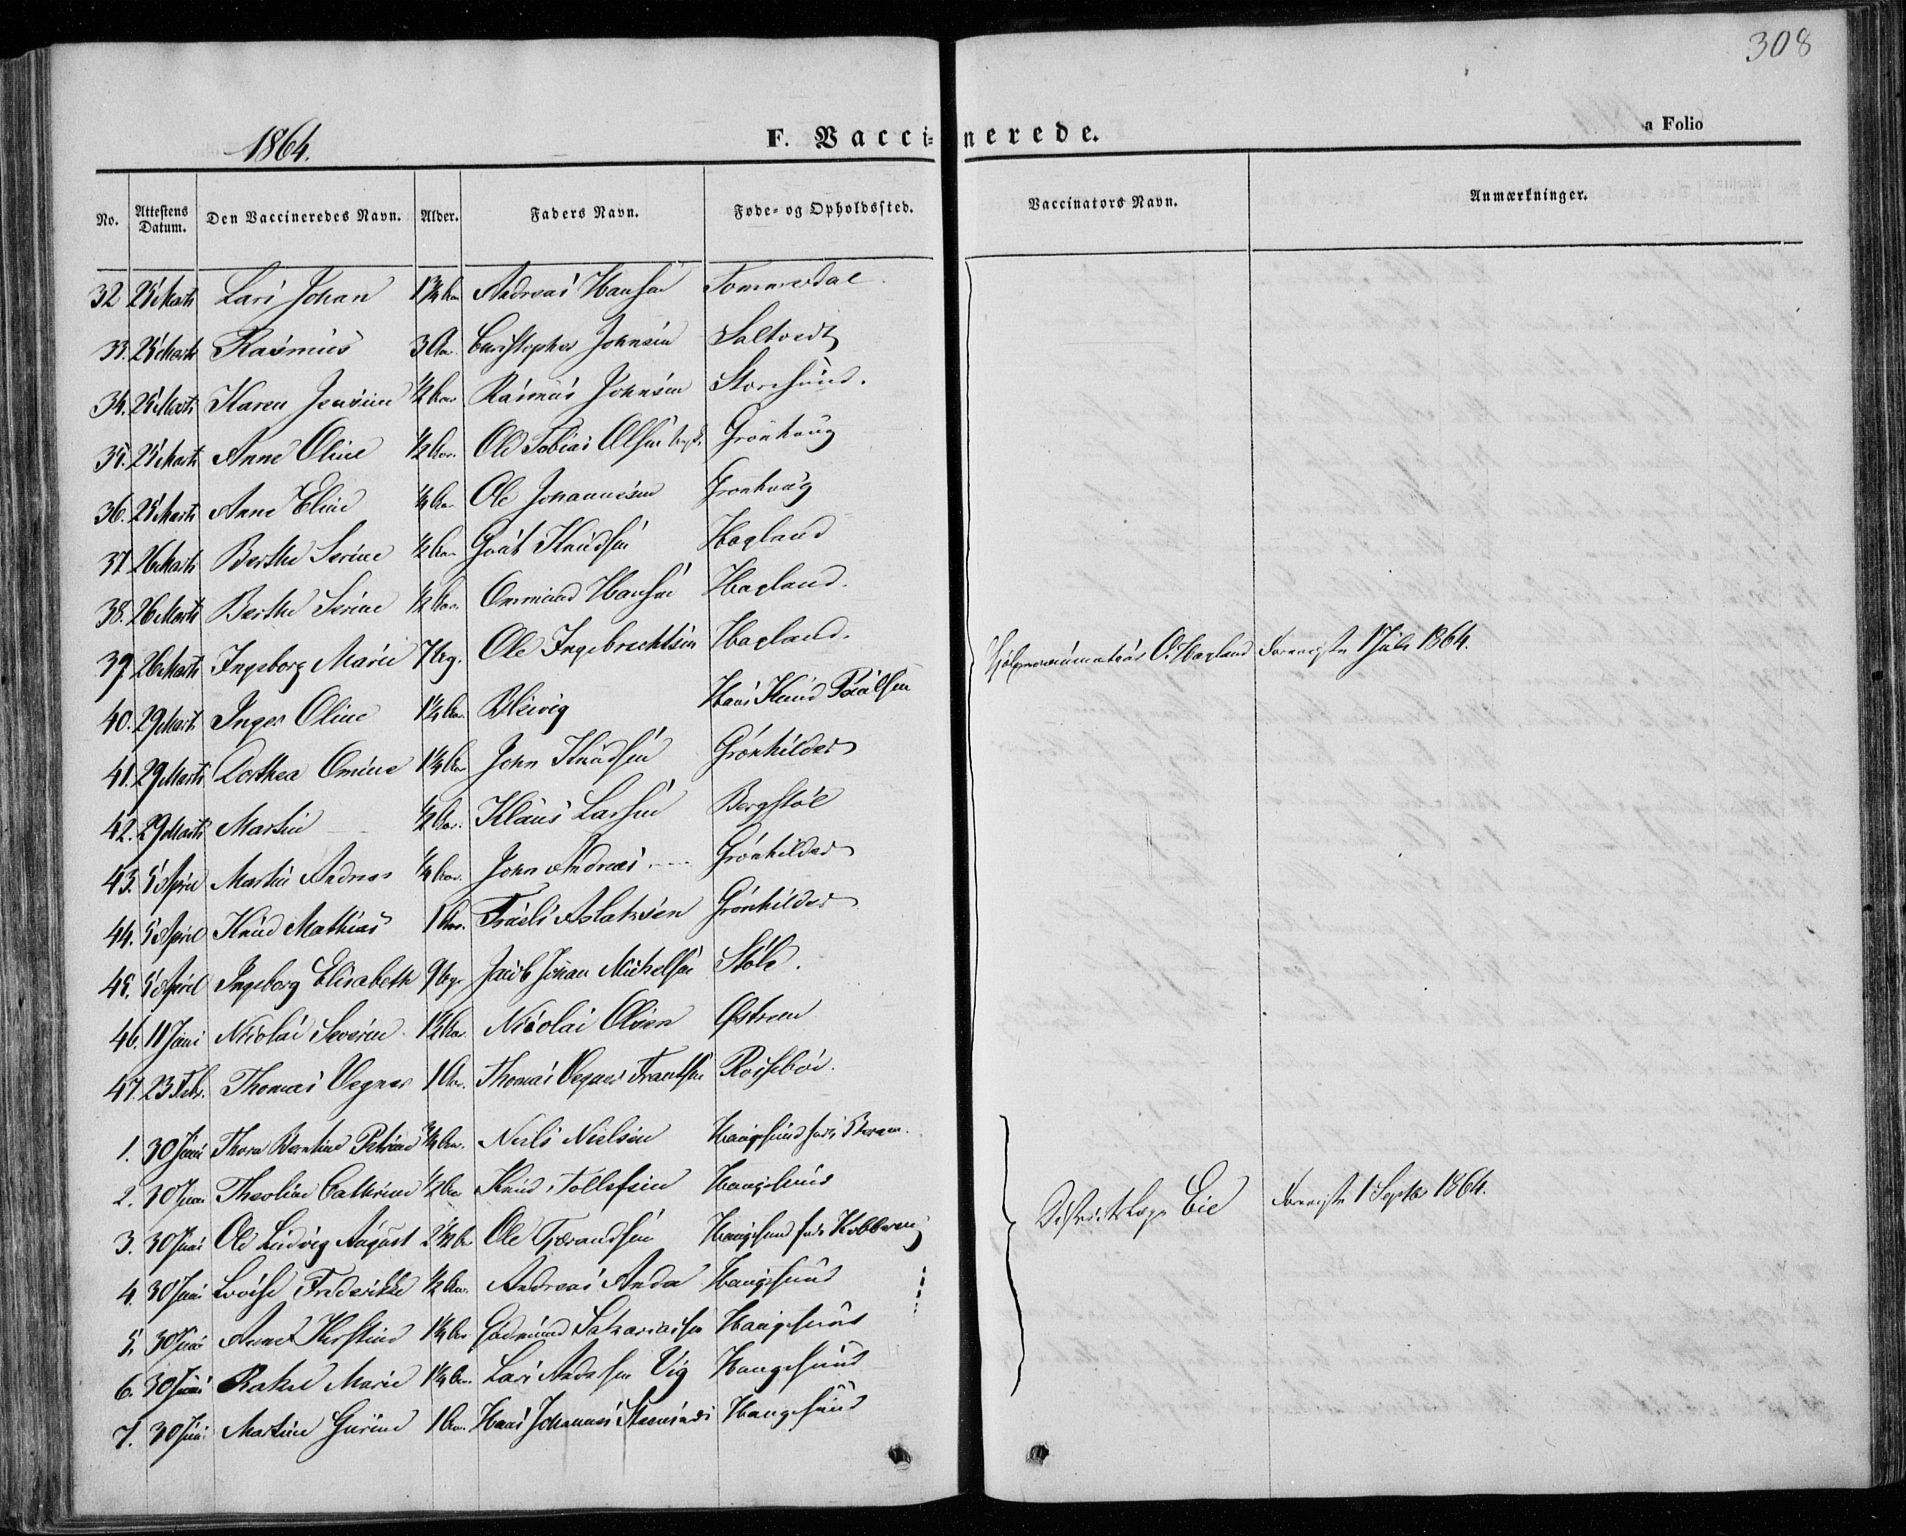 308
1864.
F. Vaccinerede.
a Folio
No. Attestens Datum. Den Vaccineredes Navn. Alder. Faders Navn. Føde- og Opholdssted. Vaccinators Navn. Anmærkninger.
32 25 Marts Lars Johan 1¾ Aar Andreas Hansen Tommerdal
33. 25 Marts Rasmus 3 Aar Christopher Johnsen Saltvedt
34. 25 Marts Karen Jensine ½ Aar Rasmus Johnsen Storesund.
35. 25 Marts Anne Oline ½ Aar. Ole Tobias Olsen Grønhaug
36. 25 Marts Anne Eline Aar Ole Johannesen Grønhaug
37. 26 Marts Berthe Serine ½ Aar Knudsen Hagland
38. 26 Marts Berthe Serine ½ Aar. Ommund Hansen Hagland.
39. 26 Marts Ingeborg Marie 7 Ole Ingebrechtsen Hagland. O. Hagland 1 Juli 1864.
40. 29 Marts Inger Oline 1¼ Aar Bleivig Hans Knud Paulsen
41. 29 Marts Dorthea Omine 1¼ Aar John Knudsen Grønhilder
42. 29 Marts Martin ½ Aar. Klaus Larsen Bergstøl
43. 5 April Martin Andreas ¼ Aar. John Andreas Grønhilder
44. 5 April Knud Mathias 1 Aar. Truels Aslaksen Grønhilder
45. 5 April Ingeborg Elisabeth 9 Jacob Johan Mickelsen Støle.
46. 11 Juni Nicolai Severin 1½ Aar. Nicolai Olsen Østrem
47. 23 Febr. Thomas Vegner 1 Aar. Thomas Vegner Frantsen Røssebøe.
1. 30 Juni Thora Berntine Petrine ¾ Aar. Neils Nielsen Haugesund
2. 30 Juni Theoline Cathrine ½ Aar Knud Tollefsen Haugesund
3. 30 Juni Ole Ludvig August 2½ Aar Ole Tjerandsen Haugesund Districtslæge Eie 1 Septbr 1864.
4. 30 Juni Lovise Frederikke ½ Aar. Andreas Anda Haugesund
5. 30 Juni Anne Kirstine 1¼ Aar Gudmund Sakariassen Haugesund
6. 30 Juni Rakel Marie 1¼ Aar. Lars Andersen Vig Haugesund
7. 30 Juni Martine Gurine 1 Aar. Hans Johannes Haugesund